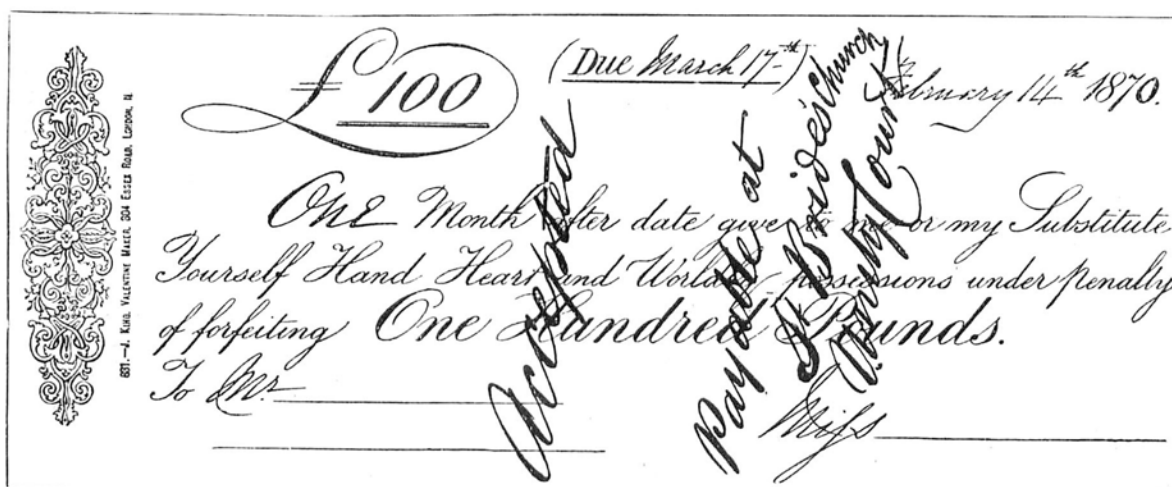 £100
(Due March 17th)
February 14th 1870.
One Month after date give to me or my Substitute
Yourself Hand Heart and Worldly possessions under penalty
of forfeiting One Hundred Pounds.
To Mr.
Miss
Accepted
Payable at
St Bride's Church
County Court
631.—J. KING, VALENTINE MAKER, 304 ESSEX ROAD, LONDON, N.